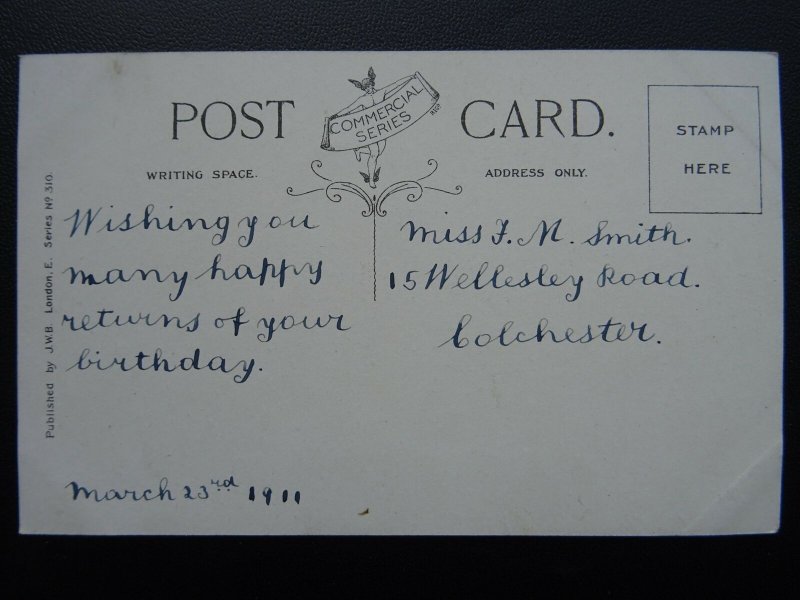 POST CARD.
COMMERCIAL
SERIES
STAMP
HERE
WRITING SPACE.
ADDRESS ONLY.
Published by J.W.B. London, E. Series Nº 310.
Wishing you
many happy
returns of your
birthday.
March 23rd 1911
Miss F. M. Smith.
15 Wellesley Road.
Colchester.